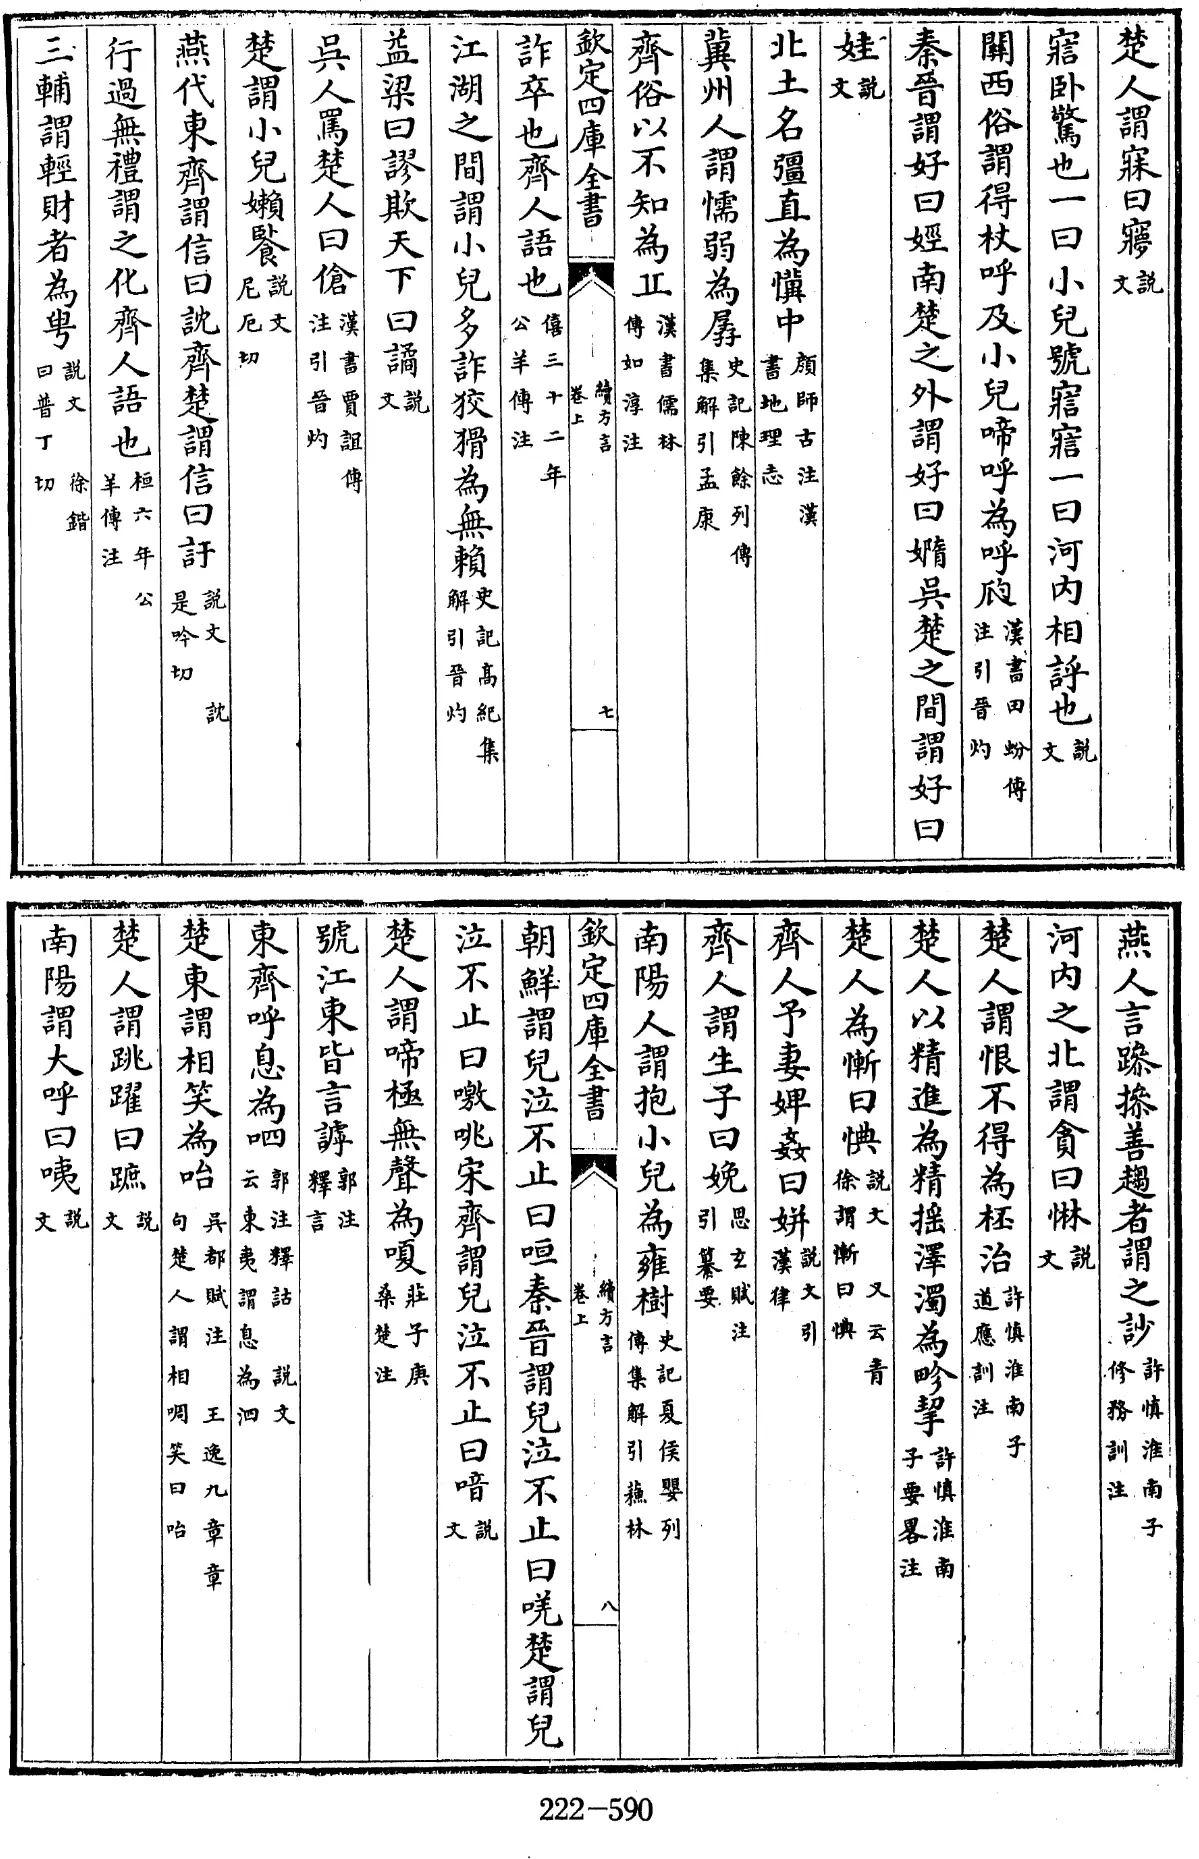 楚人謂寐曰㝱説文
寣卧驚也一曰小兒號寣寣一曰河内相評也説文
關西俗謂得杖呼及小兒啼呼為呼㕮漢書田蚡傳注引晉灼
秦晉謂好曰娙南楚之外謂好曰嫷吳楚之間謂好曰
娃説文
北土名彊直為懻中顔師古注漢書地理志
冀州人謂懦弱為孱史記陳餘列傳集解引孟康
齊俗以不知為丠漢書儒林傳如淳注
欽定四庫全書 續方言卷上 七
詐卒也齊人語也僖三十二年公羊傳注
江湖之間謂小兒多詐狡猾為無賴史記髙紀集解引晉灼
益梁曰謬欺天下曰譎説文
吳人罵楚人曰傖漢書賈誼傳注引晉灼
楚謂小兒嬾䬷説文尼厄切
燕代東齊謂信曰訦齊楚謂信曰訏説文 訦是吟切
行過無禮謂之化齊人語也桓六年公羊傳注
三輔謂輕財者為甹説文 徐鍇曰普丁切
燕人言趍摻善趨者謂之訬許慎淮南子修務訓注
河内之北謂貪曰惏説文
楚人謂恨不得為柸治許慎淮南子道應訓注
楚人以精進為精搖澤濁為畛挈許慎淮南子要畧注
楚人為慚曰惉説文 又云青徐謂慚曰惉
齊人予妻婢姦曰姘説文引漢律
齊人謂生子曰娩思玄賦注引纂要
南陽人謂抱小兒為雍樹史記夏侯嬰列傳集解引蘇林
欽定四庫全書 續方言卷上 八
朝鮮謂兒泣不止曰咺秦晉謂兒泣不止曰唴楚謂兒
泣不止曰噭咷宋齊謂兒泣不止曰喑説文
楚人謂啼極無聲為嗄莊子庚桑楚注
號江東皆言謼郭注釋言
東齊呼息為呬郭注釋詁 説文云東夷謂息為呬
楚東謂相笑為咍吳都賦注 王逸九章章句楚人謂相啁笑曰咍
楚人謂跳躍曰蹠説文
南陽謂大呼曰咦説文
222-590